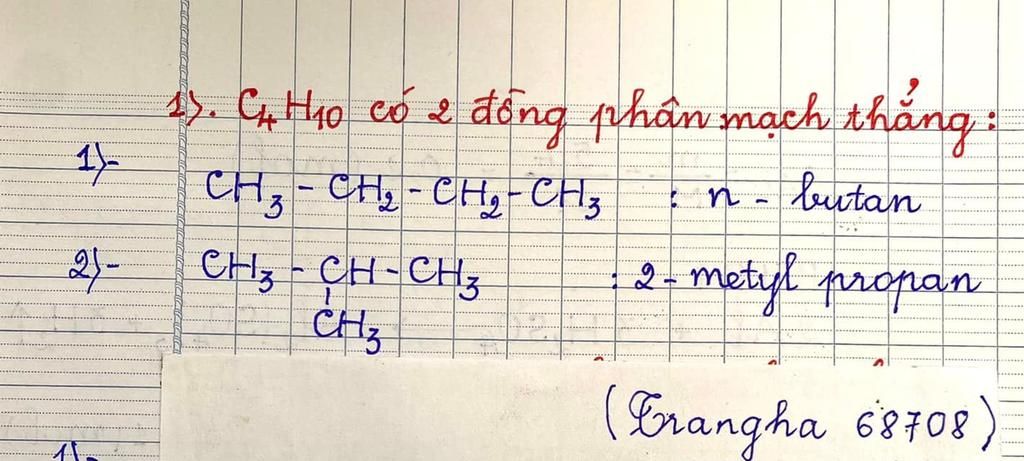 1). C4H10 có 2 đồng phân mạch thẳng :
1)- CH3 - CH2 - CH2 - CH3 : n - butan
2)- CH3 - CH - CH3 : 2 - metyl propan
CH3
(Trangha 68708)
1)-